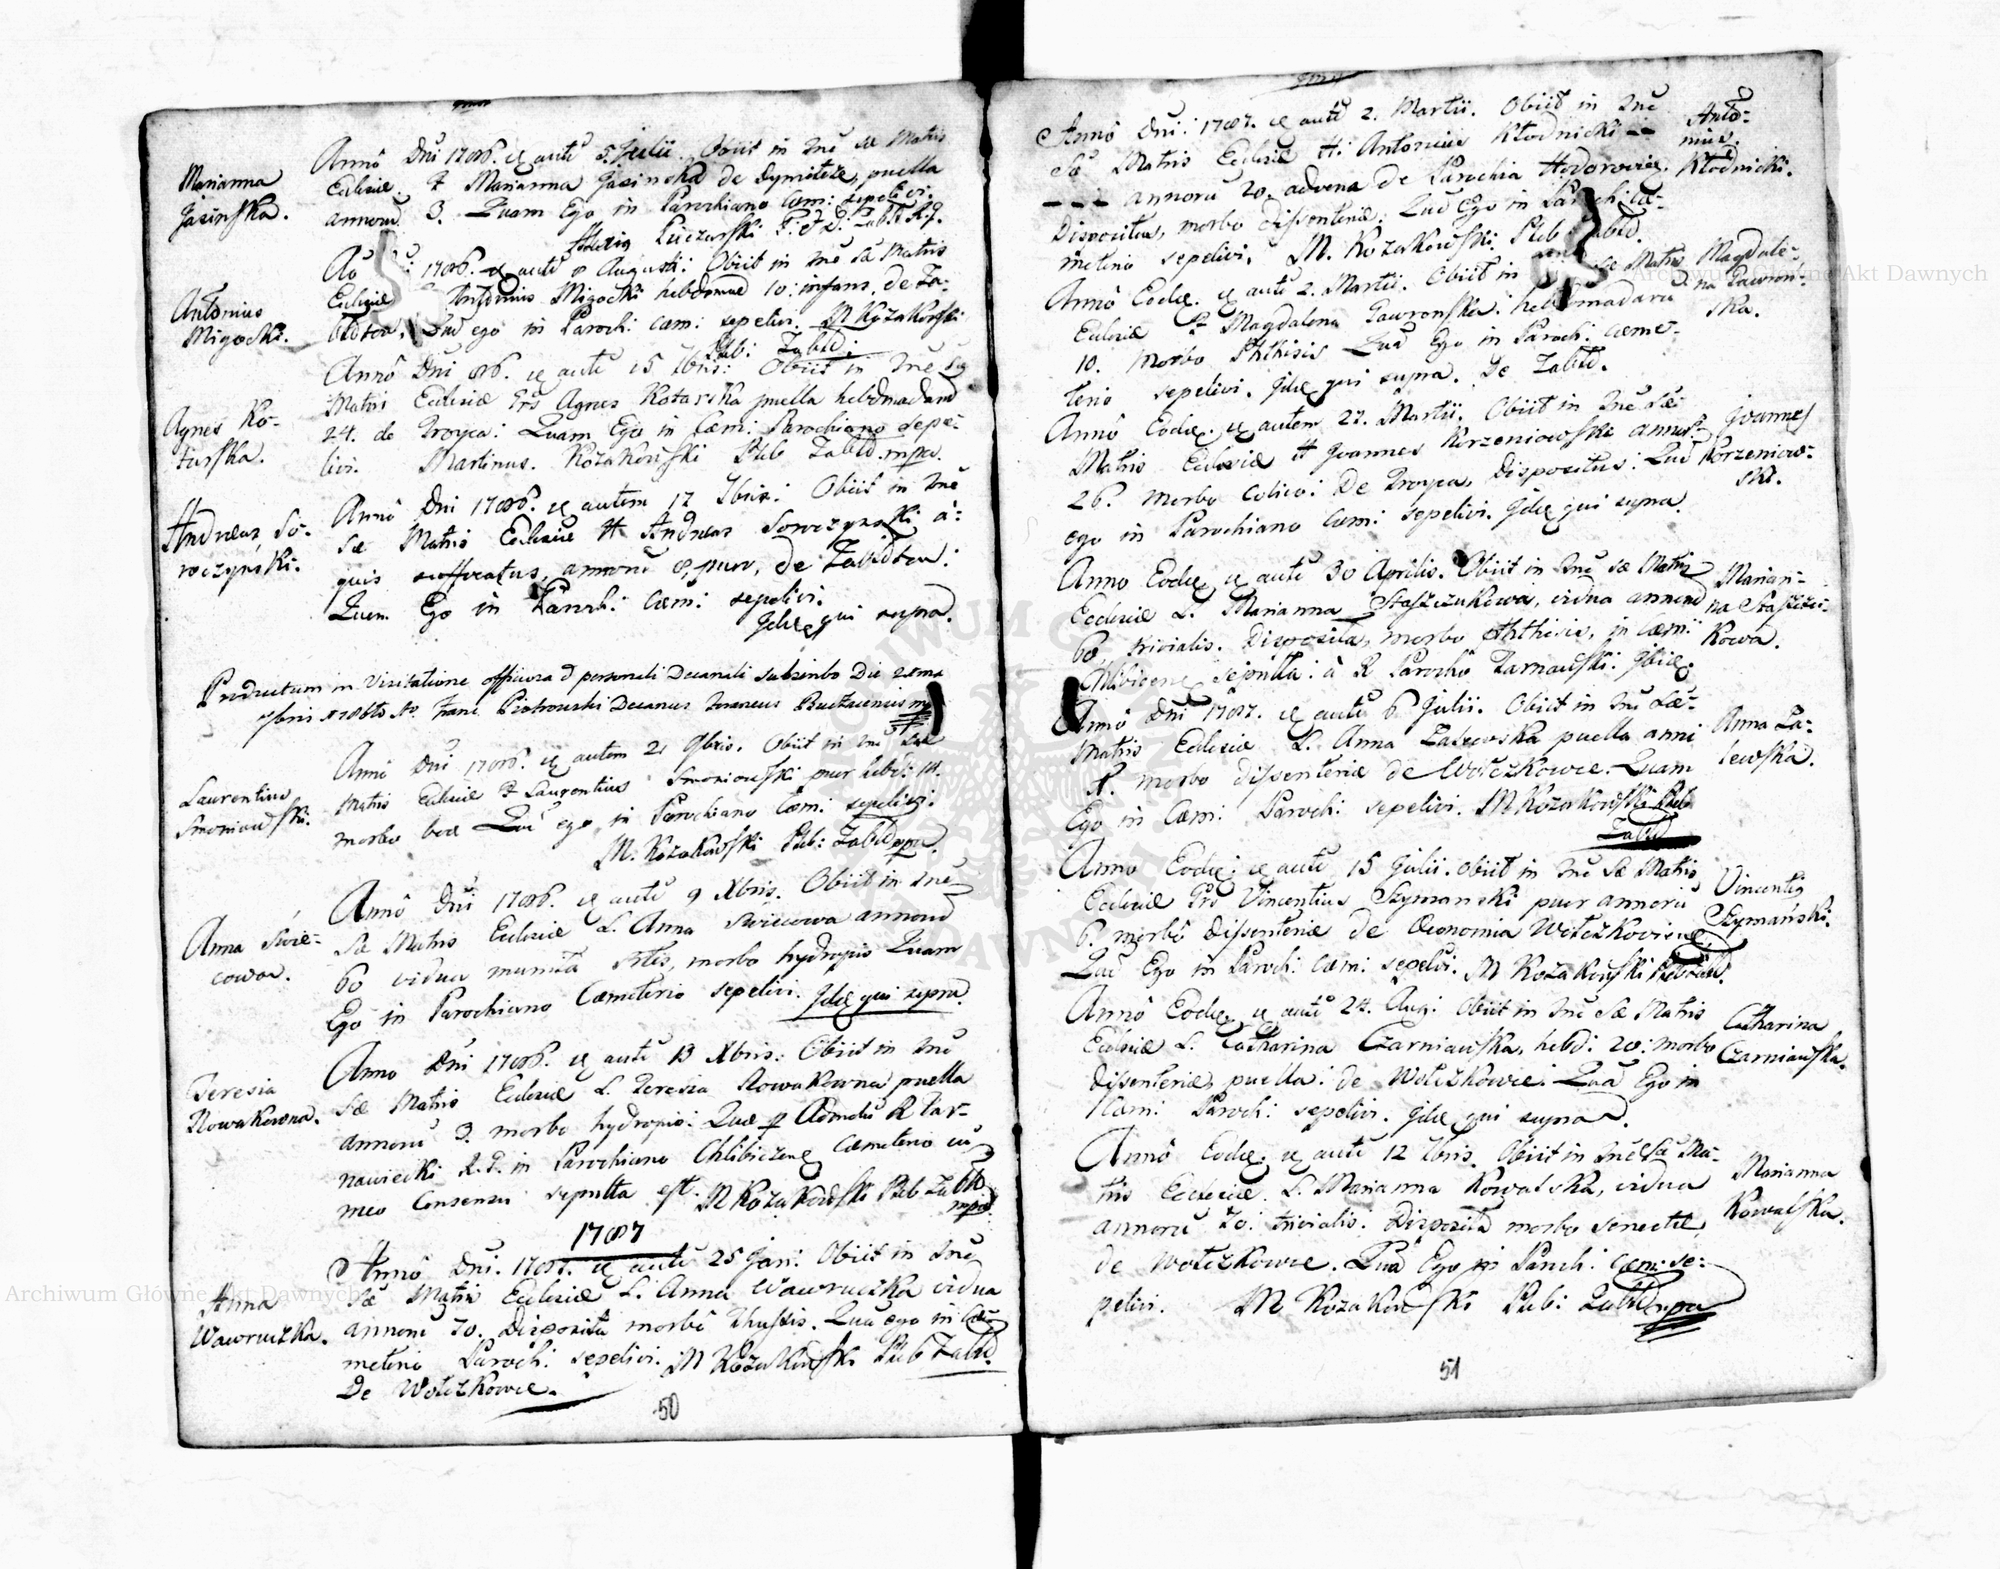 Marianna
Jasinska.
Anno Dni 1786. autē 5. Julii. Obiit in Dno Sæ Matris
Ecclesiæ. Marianna Jasinska de Dymitrze, puella
annorū 3. Quam Ego in Parochiano Cæm: sepelivi.
Antonius
Migocki.
1786. autē 8 Augusti: Obiit in Dno Sæ Matris
Ecclesiæ Antonius Migocki hebdomad 10: infans, de Za-
Quē ego in Paroch: cæm: sepelivi. M Kozakowski
Plēb: Zabłd:
Agnes Ko-
tarska.
Anno Dni 86. autē 15 7bris: Obiit in Dno Sæ
Matris Ecclesiæ Agnes Kotarska puella hebdmadarū
24. de Troyca: Quam Ego in Cæm: Parochiano sepe-
livi. Martinus. Kozakowski Plēb Zabłd mpa.
Andreas So-
wczynski.
Anno Dni 1786. autem 17 7bris: Obiit in Dno
Sæ Matris Ecclesiæ Andreas Sowczynski a-
quis suffocatus, annorū 8, puer, de Zabłdtow:
Quem Ego in Paroch: cæm: sepelivi.
Idē qui supra.
Productum in Visitatione officiosa personali Decanali subscribo Die
Franc Piotrowski Decanus
Laurentius
Smoniowski.
Anno Dni 1786. autem 21 9bris. Obiit in Dno Sæ
Matris Ecclesiæ Laurentius Smoniowski puer hebd: 14.
morbo Quē ego in Parochiano Cæm: sepelivi:
M. Kozakowski Plēb: Zabłd mpa.
Anna Świe-
cowa.
Anno Dni 1786. autē 9 Xbris. Obiit in Dno
Sæ Matris Ecclesiæ L. Anna Swiecowa annorū
60 vidua munita morbo hydropis Quam
Ego in Parochiano Cæmeterio sepelivi. Idē qui supra.
Teresia
Nowakowna.
Anno Dni 1786. autē 13 Xbris: Obiit in Dno
Sæ Matris Ecclesiæ L. Teresia Nowakowna puella
annorū 3. morbo hydropis: Quæ p Admodū R Tar-
nawiecki in Parochiano Chlibiczene cæmeterio cū
meo Consensu sepulta est. M Kozakowski Plēb Zabłd
mpa
1787
Anna
Wawruczka.
Anno Dni. 1787. autē 25 Jan: Obiit in Dno
Sæ Matris Ecclesiæ L: Anna Wawruczka vidua
annorū 70. Disposita morbo thussis. Quā ego in Cæ-
meterio Paroch: sepelivi. M Kozakowski Plēb Zabłd.
De Wołczkowce.
50
Anno Dni: 1787. autē 2. Martii. Obiit in Dno
Sæ Matris Ecclesiæ Antonius Kłodnicki --
--- annorū 20. advena de Parochia Hodorowiez.
Dispositus, morbo dissenteriæ: Quē Ego in Paroch: cæ-
meterio sepelivi. M. Kozakowski. Plēb Zabłd.
Anto-
nius
Kłodnicki.
Anno Eodē. autē 2. Martii. Obiit in Sæ Matris
Ecclesiæ Magdalena Gawronska: hebdomadarū
10. Morbo Phthisis Quā Ego in Paroch: cæme-
terio sepelivi. Idē qui supra. De Zabłd.
Magdale-
na Gawron-
ska.
Anno Eodē. autem 27. Martii. Obiit in Dno Sæ
Matris Ecclesiæ Joannes Korzeniowski annor.
26. morbo Colico: De Troyca, Dispositus: Quē
ego in Parochiano Cæm: sepelivi. Idē qui supra
Joannes
Korzeniow-
ski.
Anno Eodē autē 30 Aprilis. Obiit in Dno Sæ Matris
Ecclesiæ L. Marianna Staszczukowa, vidua annorū
60 trivialis. Disposita, morbo Phthisis, in cæm:
Chlibicene sepulta: à R Parocho Tarnawski.
Marian-
na Staszczu-
kowa.
Anno Dni 1787. autē 6 Julii. Obiit in Dno Sæ-
Matris Ecclesiæ L. Anna Zalewska puella anni
1. morbo dissenteriæ de Wołczkowce. Quam
Ego in Cæm: Paroch: sepelivi. M Kozakowski Plēb
Zabłd
Anna Za-
lewska.
Anno Eodē: autē 15 Julii. Obiit in Dno Sæ Matris
Ecclesiæ Vincentius Szymanski puer annorū
6. morbo Dissenteriæ de Œconomia Wołczkoviensi
Quē Ego in Paroch: cæm: sepelivi. M Kozakowski Plēb Zabłd.
Vincenti9
Szymański.
Anno Eodē. autē 24. Aug: Obiit in Dno Sæ Matris
Ecclesiæ L. Catharina Czarniawska, hebd: 20: morbo
dissenteriæ, puella: de Wołczkowce: Quā Ego in
Cæm: Paroch: sepelivi. Idē qui supra.
Catharina
Czarniawska.
Anno Eodē. autē 12 7bris. Obiit in Dno Sæ Ma-
tris Ecclesiæ. L. Marianna Kowalska, vidua
annorū 70: trivialis. Disposita morbo senectæ
de Wołczkowce. Quā Ego in Paroch: cæm: se-
pelivi. M Kozakowski Plēb: Zabłd mpa
Marianna
Kowalska.
51
Archiwum Główne Akt Dawnych
Archiwum Główne Akt Dawnych